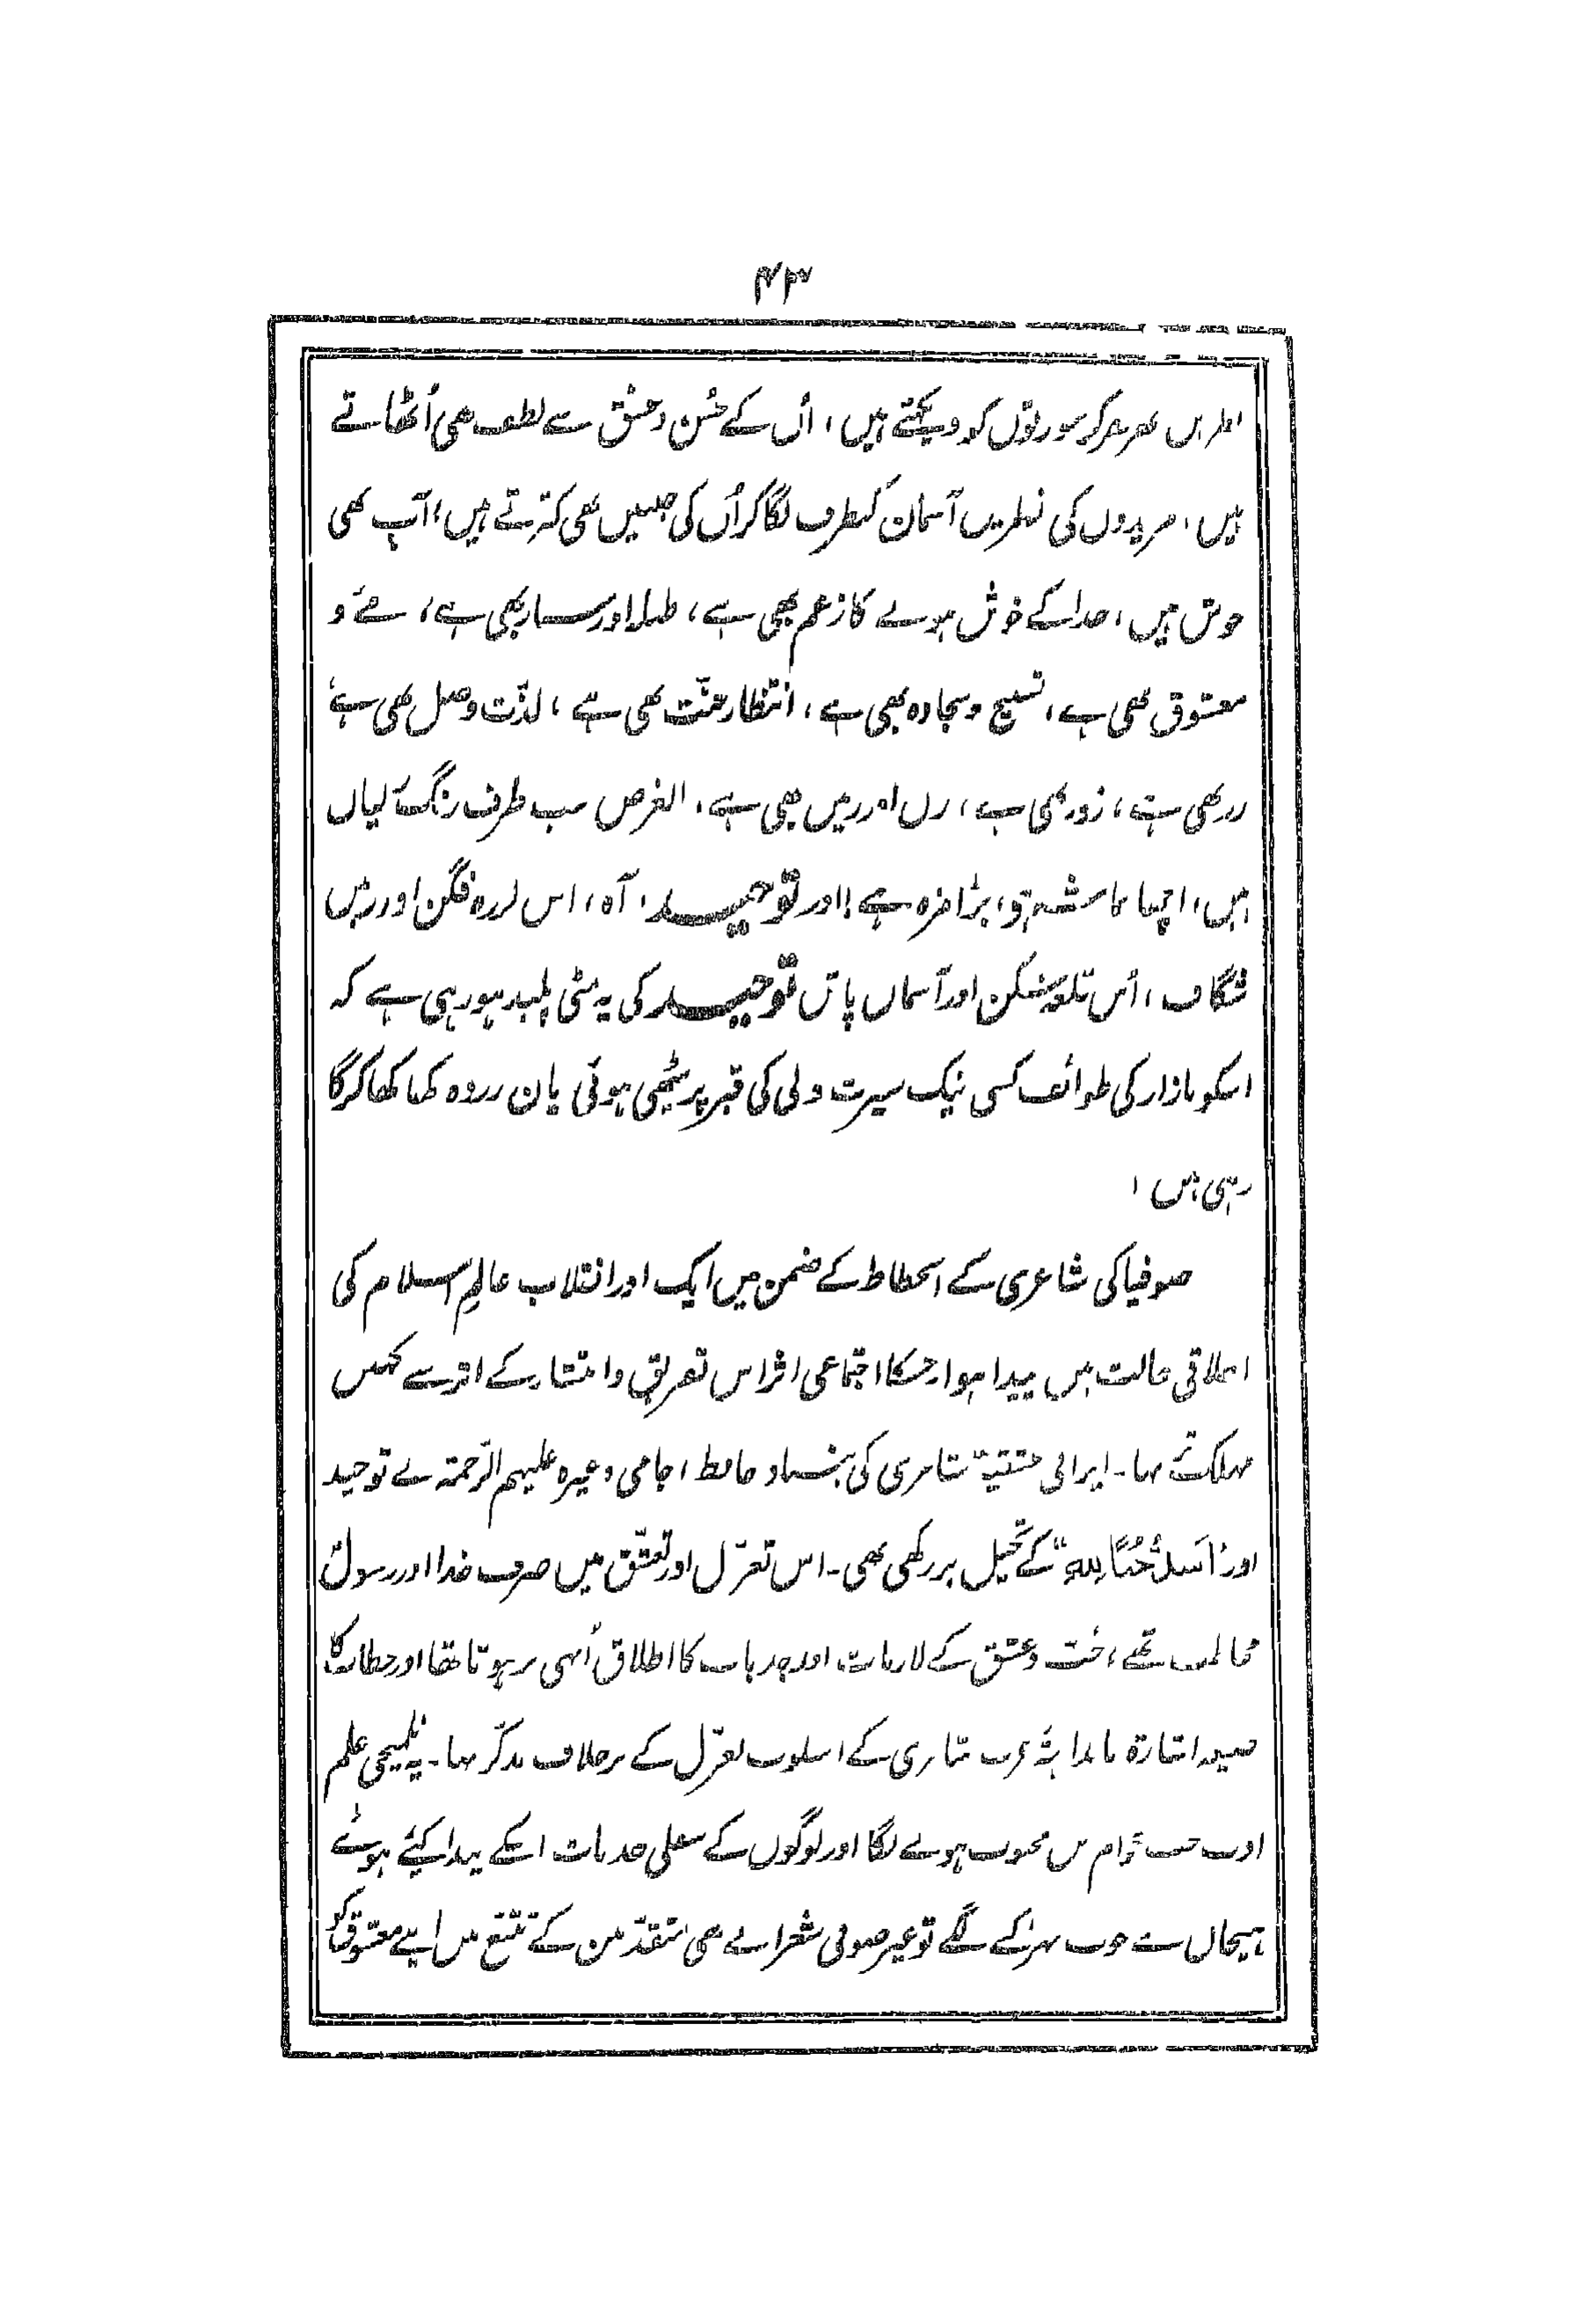 ۴۳
نظریں بھر بھر کر عورتوں کو دیکھتے ہیں، اُن کے حُسن و عشق سے لطف بھی اُٹھاتے
ہیں، مریدوں کی نظریں آسمان کیطرف لگا کر اُن کی جیبیں بھی کترتے ہیں؛ آپ بھی
خوش ہیں، خدا کے خوش ہونے کا زعم بھی ہے، طبلہ اور ستار بھی ہے، مے و
معشوق بھی ہے، تسبیح و سجادہ بھی ہے، انتظار جنّت بھی ہے، لذّت وصل بھی ہے،
زر بھی ہے، زور بھی ہے، زن اور زمین بھی ہے، الغرض سب طرف رنگ رلیاں
ہیں، اچھا تماشہ، بڑا مزہ ہے! اور توحید، آہ، اس لرزہ فگن اور زمین
شگاف، اُس قلعہ شکن اور آسمان پاش توحید کی یہ مٹی پلید ہو رہی ہے کہ
اسکو بازار کی طوائف کسی نیک سیرت ولی کی قبر پر بیٹھی ہوئی پان زردہ کھا کھا کر گا
رہی ہیں!
صوفیا کی شاعری کے انحطاط کے ضمن میں ایک اور انقلاب عالمِ اسلام کی
اخلاقی حالت میں پیدا ہوا جسکا اجتماعی اثر اس تفریق و انتشار کے اثر سے کہیں
مہلک تھا۔ ایرانی عشقیہ شاعری کی بنیاد حافظ، جامی وغیرہ علیہم الرّحمۃ نے توحید
اور "اَشَدُّ حُبًّا لِلّٰہِ" کے تخیل پر رکھی تھی۔ اس تغزّل اور تعشّق میں صرف خدا اور رسولؐ
مخاطب تھے، حُب و عشق کے لازمات اور جذبات کا اطلاق اُنہی پر ہوتا تھا اور خطاب کا
صیغہ اشارۃً عرب شاعری کے اسلوب تغزّل کے برخلاف مذکّر تھا۔ یہ تلمیحی علم
ادب جب عوام میں محبوب ہونے لگا اور لوگوں کے سفلی جذبات اسکے پیدا کیئے ہوئے
ہیجان سے خوب بھڑکے گئے تو غیر صوفی شعرا نے بھی متقدّمین کے تتبّع میں اپنے معشوق کو